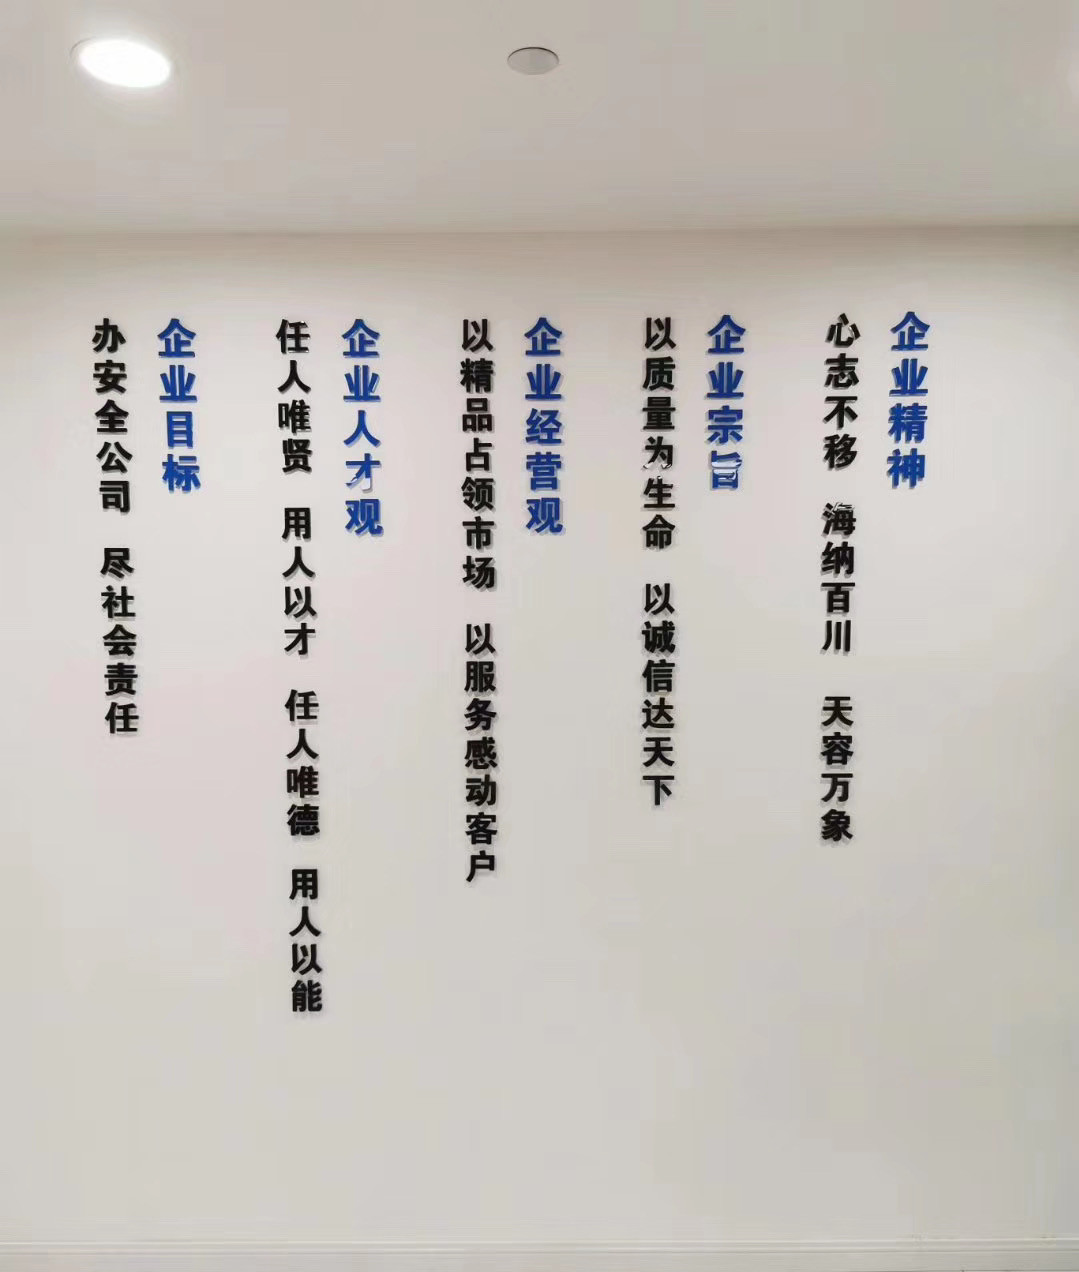 企业精神
心志不移 海纳百川 天容万象
企业宗旨
以质量为生命 以诚信达天下
企业经营观
以精品占领市场 以服务感动客户
企业人才观
任人唯贤 用人以才 任人唯德 用人以能
企业目标
办安全公司 尽社会责任